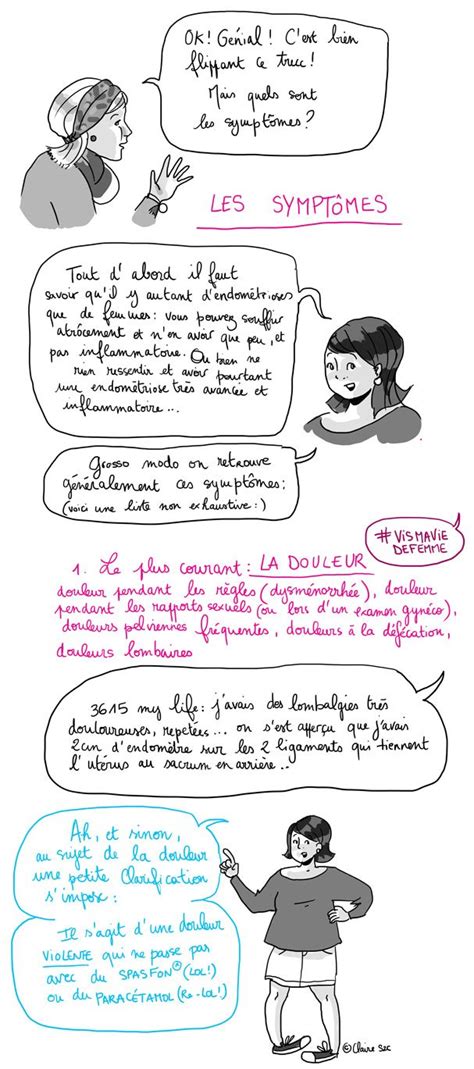 OK! Génial! C'est bien
flippant ce truc!
Mais quels sont
les symptômes?
LES SYMPTÔMES
Tout d'abord il faut
savoir qu'il y autant d'endométrioses
que de femmes: vous pouvez souffrir
atrocement et n'en avoir que peu, et
pas inflammatoire. Ou bien ne
rien ressentir et avoir pourtant
une endométriose très avancée et
inflammatoire...
Grosso modo on retrouve
généralement ces symptômes:
(voici une liste non exhaustive:)
#VISMAVIE
DEFEMME
1. Le plus courant: LA DOULEUR
douleur pendant les règles (dysménorrhée), douleur
pendant les rapports sexuels (ou lors d'un examen gynéco),
douleurs pelviennes fréquentes, douleurs à la défécation,
douleurs lombaires
3615 my life: j'avais des lombalgies très
douloureuses, repetées... on s'est apperçu que j'avais
2cm d'endomètre sur les 2 ligaments qui tiennent
l'utérus au sacrum en arrière..
Ah, et sinon,
au sujet de la douleur
une petite clarification
s'impose:
Il s'agit d'une douleur
VIOLENTE qui ne passe pas
avec du SPASFON® (LOL!)
ou du PARACÉTAMOL (Re-LOL!)
©Claire Sec